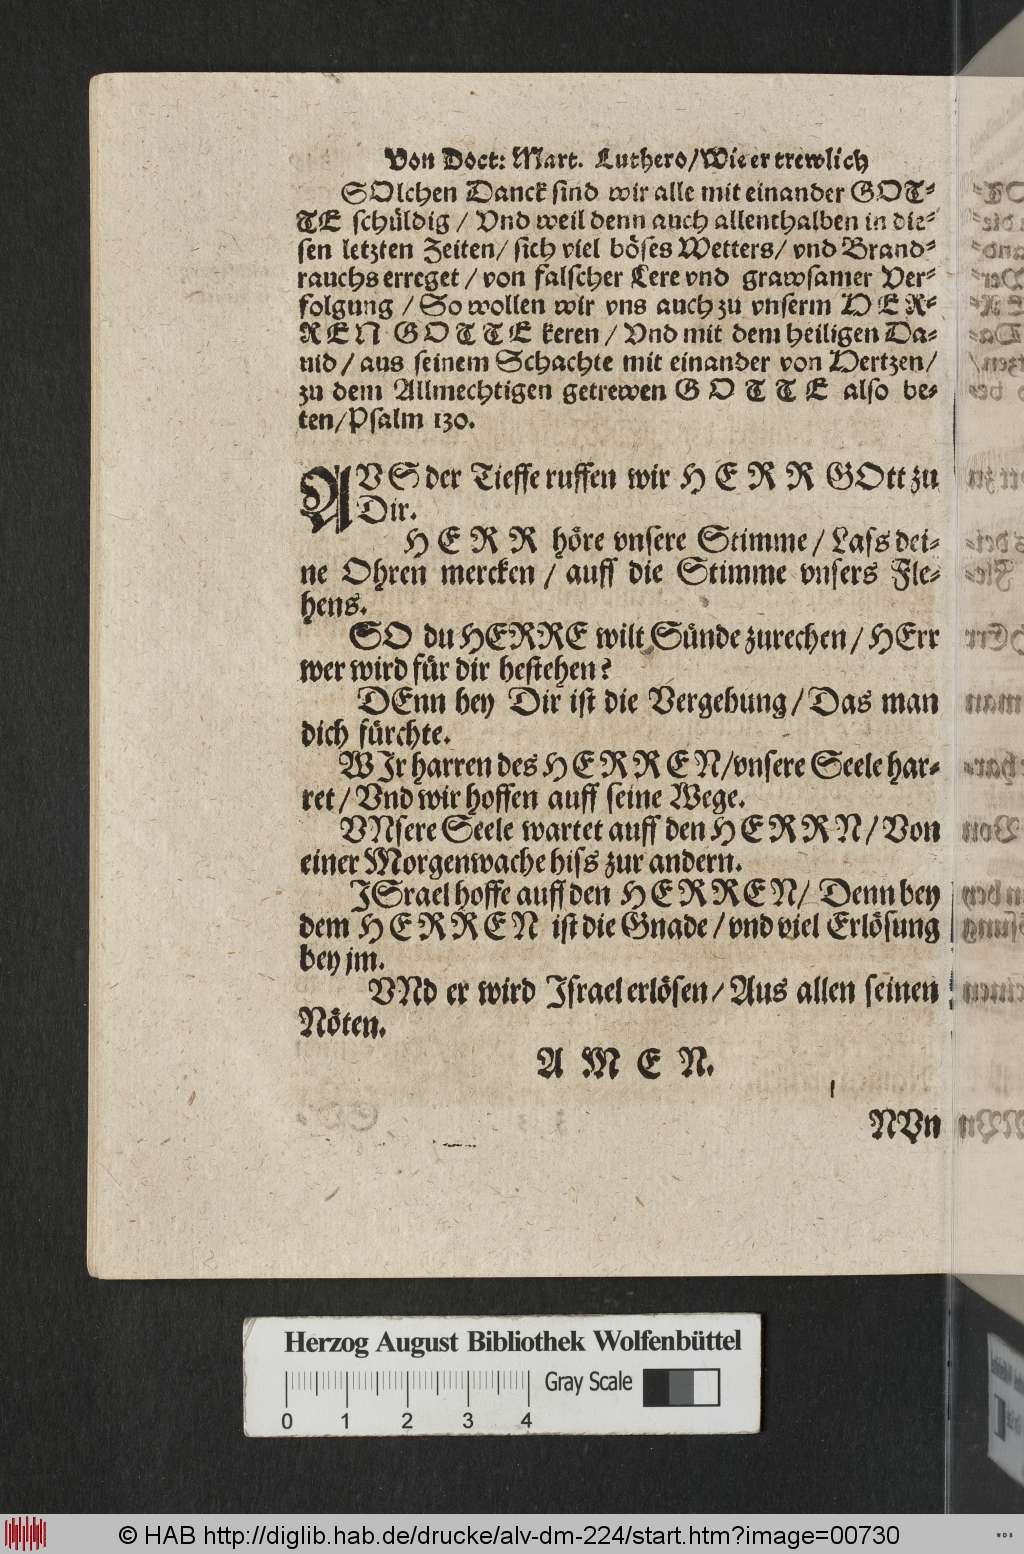 Von Doct: Mart. Luthero/Wie er trewlich
SOlchen Danck sind wir alle mit einander GOT-
TE schüldig / Vnd weil denn auch allenthalben in die-
sen letzten Zeiten/ sich viel böses Wetters/ vnd Brand-
rauchs erreget / von falscher Lere vnd grawsamer Ver-
folgung / So wollen wir vns auch zu vnserm HER-
REN GOTTE keren / Vnd mit dem heiligen Da-
uid / aus seinem Schachte mit einander von Hertzen/
zu dem Allmechtigen getrewen GOTTE also be-
ten/Psalm 130.
AVS der Tieffe ruffen wir HERR GOtt zu
Dir.
HERR höre vnsere Stimme / Lass dei-
ne Ohren mercken / auff die Stimme vnsers Fle-
hens.
SO du HERRE wilt Sünde zurechen / HErr
wer wird für dir bestehen?
DEnn bey Dir ist die Vergebung / Das man
dich fürchte.
WIr harren des HERREN/vnsere Seele har-
ret / Vnd wir hoffen auff seine Wege.
VNsere Seele wartet auff den HERRN / Von
einer Morgenwache biss zur andern.
ISrael hoffe auff den HERREN/ Denn bey
dem HERREN ist die Gnade / vnd viel Erlösung
bey jm.
VNd er wird Israel erlösen / Aus allen seinen
Nöten.
AMEN.
NVn
Herzog August Bibliothek Wolfenbüttel
Gray Scale
0 1 2 3 4
© HAB http://diglib.hab.de/drucke/alv-dm-224/start.htm?image=00730